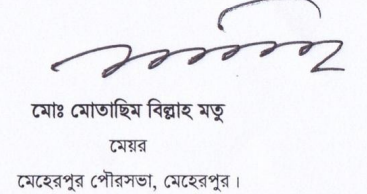 মোঃ মোতাছিম বিল্লাহ মতু
মেয়র
মেহেরপুর পৌরসভা, মেহেরপুর।